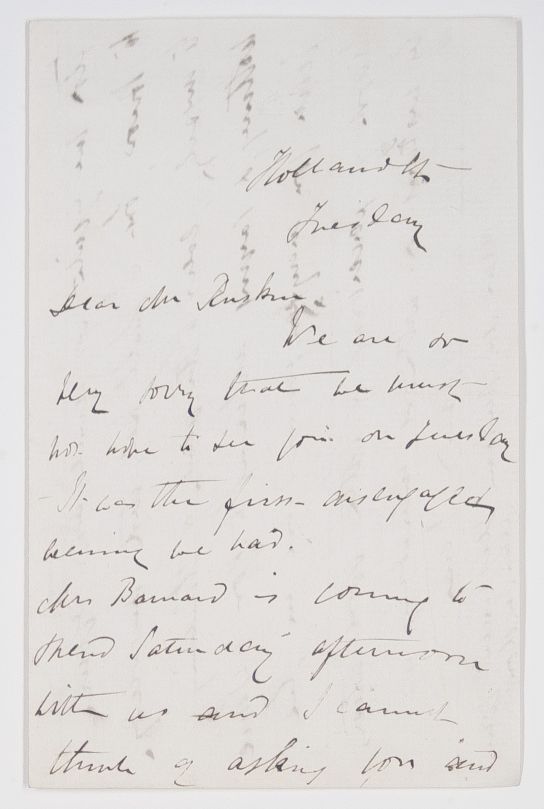 Holland St
Tuesday
Dear Mr Ruskin
We are so
very sorry that we must
not hope to see you on Tuesday
- It was the first disengaged
evening we had.
Mrs Barnard is coming to
spend Saturday afternoon
with us and I cannot
think of asking you and